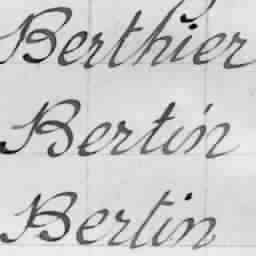 Berthier
Bertin
Bertin